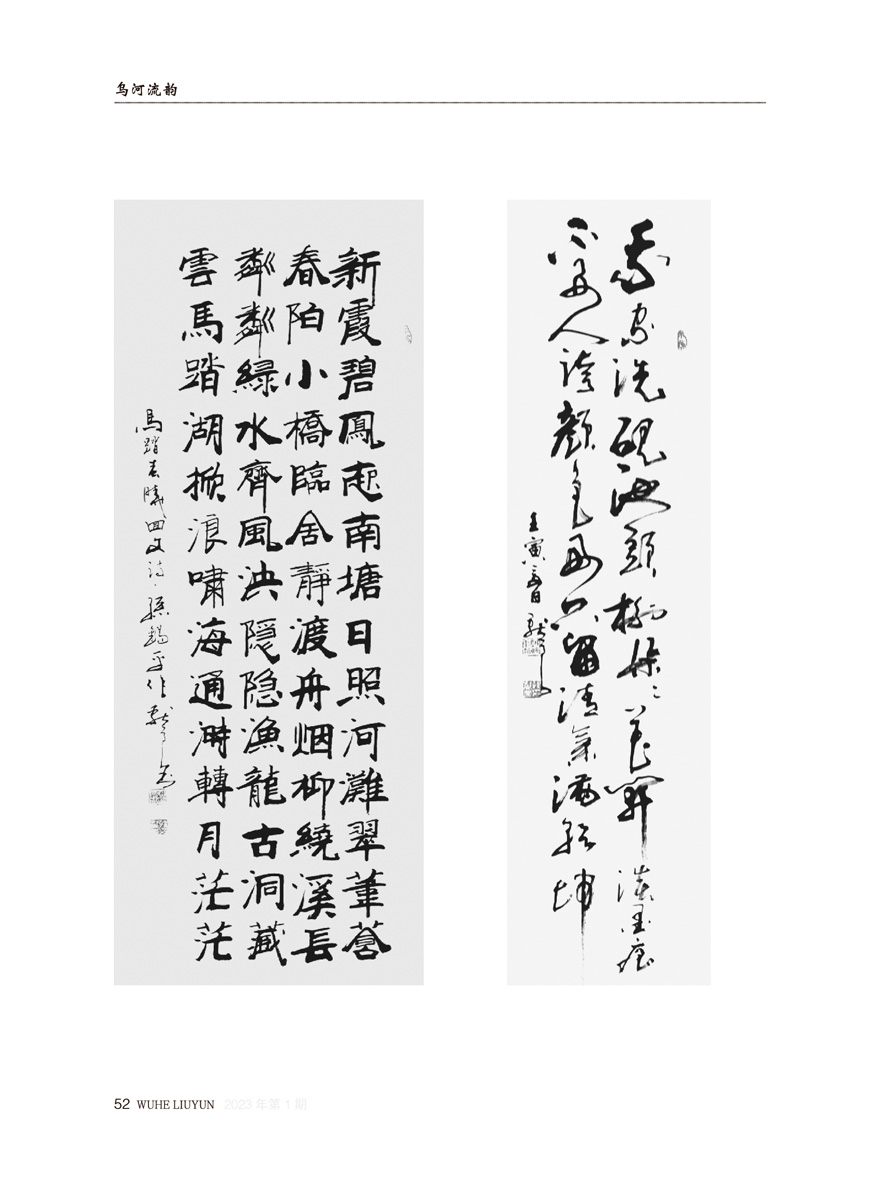 乌河流韵
新霞碧鳳起南塘日照河灘翠葦蒼
春陌小橋臨舍靜渡舟烟柳繞溪長
粼粼綠水齊風泱隱隐漁龍古洞藏
雲馬踏湖掀浪嘯海通轉月茫茫
馬踏春曦回文詩 孫錫平作
我家洗硯池頭樹朵朵花開淡墨痕
不要人誇顏色好只留清氣滿乾坤
壬寅春日
52 WUHE LIUYUN 2023 年第 1 期